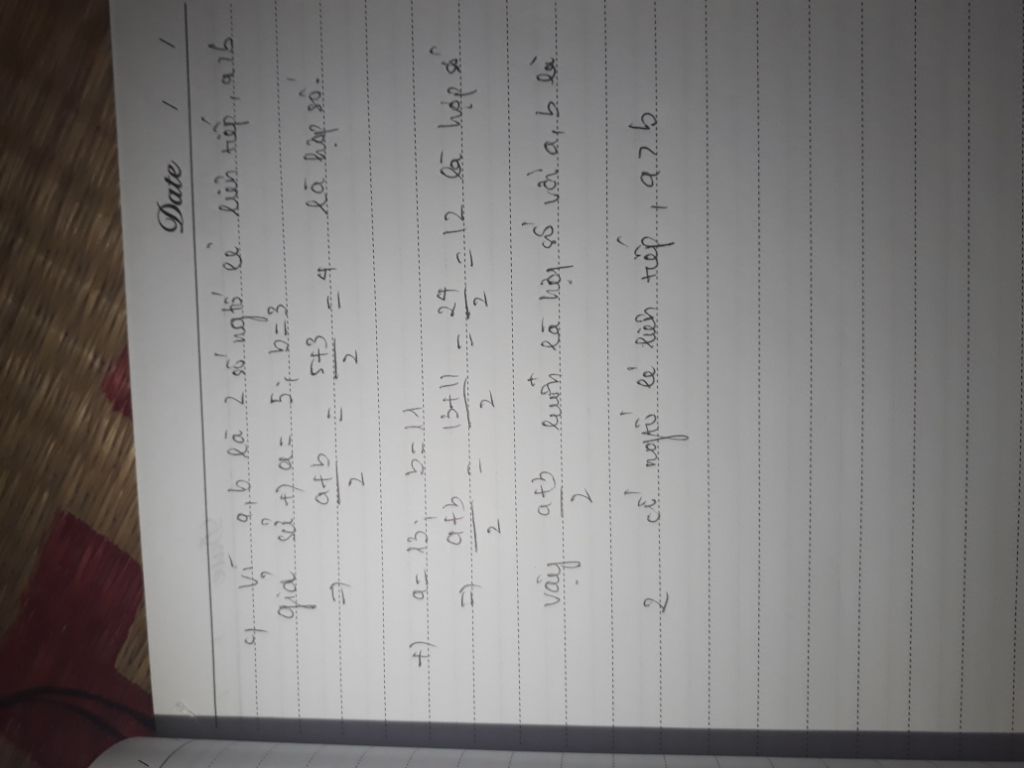 Date / /
c) Vì a, b là 2 số ngtố lẻ liên tiếp, a>b
giả sử +) a = 5; b=3
=> a+b/2 = 5+3/2 = 4 là hợp số.
+) a=13; b=11
=> a+b/2 = 13+11/2 = 24/2 = 12 là hợp số
vậy a+b/2 luôn là hợp số với a, b là
2 số ngtố lẻ liên tiếp, a>b